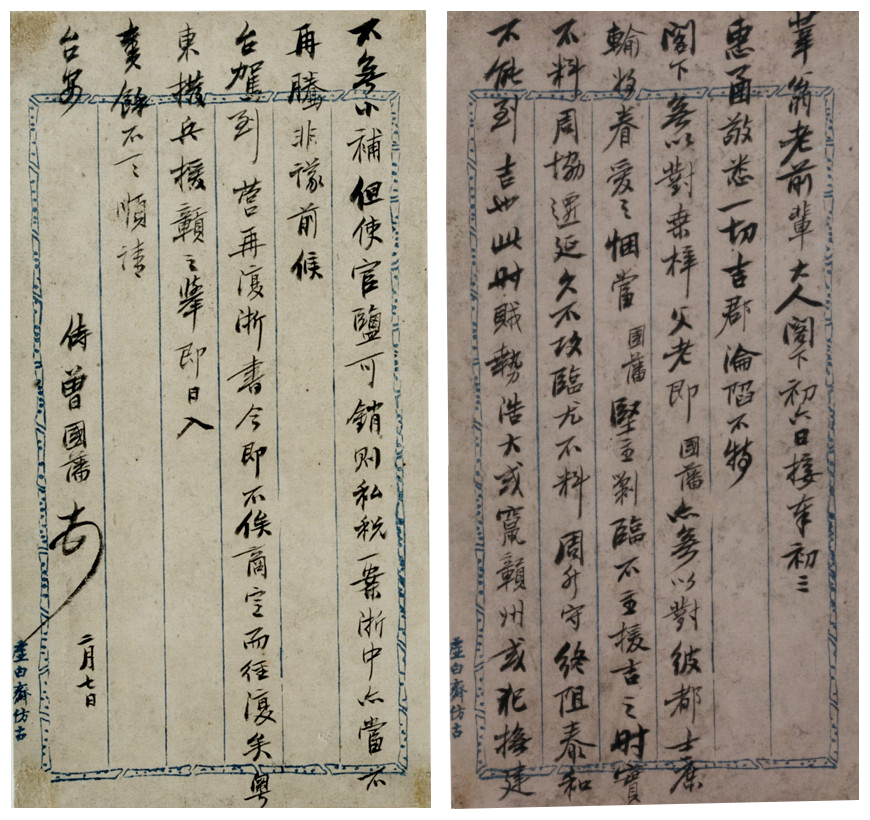 莘翁老前輩大人閣下初六日接奉初三
惠函敬悉一切吉郡淪陷不特
閣下無以對桑梓父老即國藩亦無以對彼都士庶
輸將眷愛之悃當國藩堅主剿臨不主援吉之時實
不料周協遷延久不攻臨尤不料周升守終阻泰和
不能到吉也此時賊勢浩大或竄贛州或犯撫建
虛白齋仿古
不無小補但使官鹽可銷則私稅一案浙中亦當不
再騰非議前候
台駕到營再復浙書今即不俟商定而徑復矣粵
東撥兵援贛之舉即日入
奏餘不一一順請
台安
侍曾國藩
二月七日
虛白齋仿古